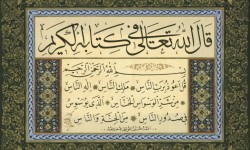 قال الله تعالى في كتابه الكريم
بسم الله الرحمن الرحيم
قل اعوذ برب الناس ملك الناس اله الناس
من شر الوسواس الخناس الذي يوسوس
في صدور الناس من الجنة والناس